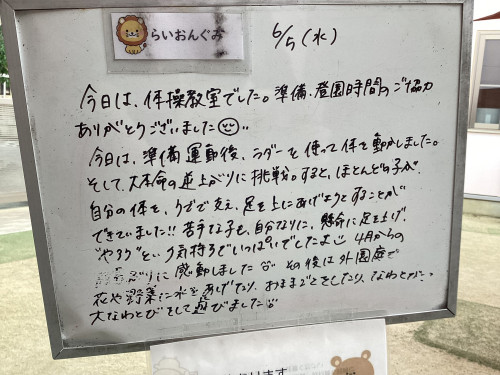 らいおんぐみ
6/5(水)
今日は、体操教室でした。準備、登園時間のご協力
ありがとうございました
今日は、準備運動後、ラダーを使って体を動かしました。
そして、大本命の逆上がりに挑戦。すると、ほとんどの子が、
自分の体を、うでで支え、足を上にあげようとすることが
できていました!! 苦手な子も、自分なりに、懸命に足を上げ、
"やるぞ"という気持ちでいっぱいでしたよ 4月からの
ぶりに感動しました その後は外園庭で
花や野菜に水をあげたり、おままごとをしたり、なわとび、
大なわとびをして遊びました